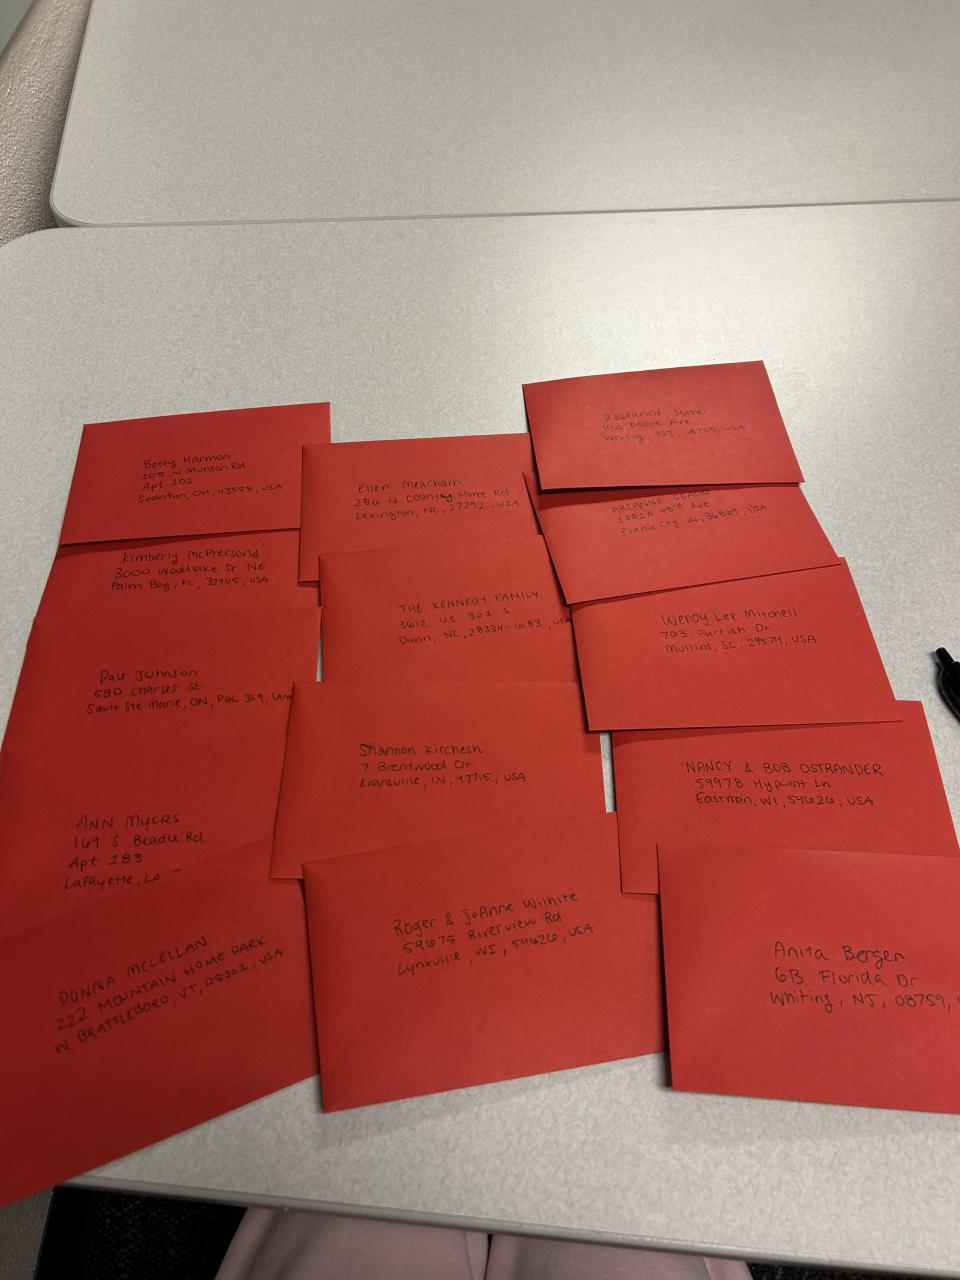 Betty Harmon
105 N Munson Rd
Apt 101
Swanton, OH, 43558, USA
Kimberly McPhersong
3000 Woodlake Dr NE
Palm Bay, FL, 32905, USA
Dale Johnson
580 Charles St.
Sault Ste Marie, ON, P6C 3L9, Cana
ANN MYERS
169 S Beadle Rd
Apt 183
Lafayette, LA
DONNA MCLELLAN
222 MOUNTAIN HOME PARK
W BRATTLEBORO, VT, 05301, USA
Ellen Meacham
286 N Country Home Rd
Lexington, NC, 27292, USA
THE KENNEDY FAMILY
3612 US 301 S
Dunn, NC, 28334-6183, USA
Shannon Kirchesh
7 Brentwood Cir
Evansville, IN, 47715, USA
Roger & JoAnne Wilhite
59675 Riverview Rd
Lynxville, WI, 54626, USA
Roseanne Maher
Ave
Whiting, NJ, 08759, USA
Ave
Phenix City, AL, 36869, USA
Wendy Lee Mitchell
703 Parrish Dr
Mullins, SC, 29574, USA
NANCY & BOB OSTRANDER
59978 Hypoint Ln
Eastman, WI, 54626, USA
Anita Bergen
6B Florida Dr
Whiting, NJ, 08759,